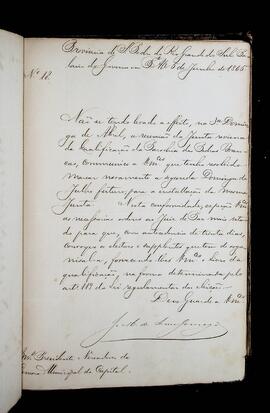 Provincia de S. Pedro do Rio Grande do Sul. Pa-
lacio do Governo em P.to Al.e 5 de Junho de 1865
Nº 12.
Não se tendo levado a effeito, na 3ª Domin-
ga de Abril, a reunião da Junta revisora
de qualificação da Parochia das Pedras Bran-
cas, communico a Vm.ces que tenho resolvido
marcar novamente a segunda Dominga de
Julho futuro, para a installação da mesma
Junta. Nesta conformidade, expeção Vm.ces
as necessarias ordens ao Juiz de Paz mais votado
do para que, com antecedencia de trinta dias,
convoque os eleitores e supplentes que tem de orga-
nisal-a, fornecendo Vm.ces o Livro da
qualificação, na forma determinada pelo
art. 119 da Lei regulamentar das eleições.
Deus Guarde a Vm.ces
Snr.s Presidente e Vereadores da
Camara Municipal da Capital.